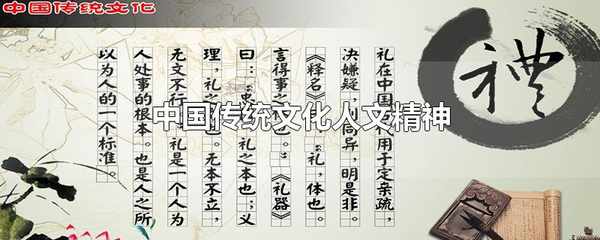 中国传统文化
禮
中国传统文化人文精神
礼在中国代用于定亲疏，
决嫌疑，别同异，明是非。
《释名》礼，体也。
言得事之也。《礼器》
曰：“礼之本也；义
理，礼无本不立，
无文不行礼是一个人为
人处事的根本。也是人之所
以为人的一个标准。